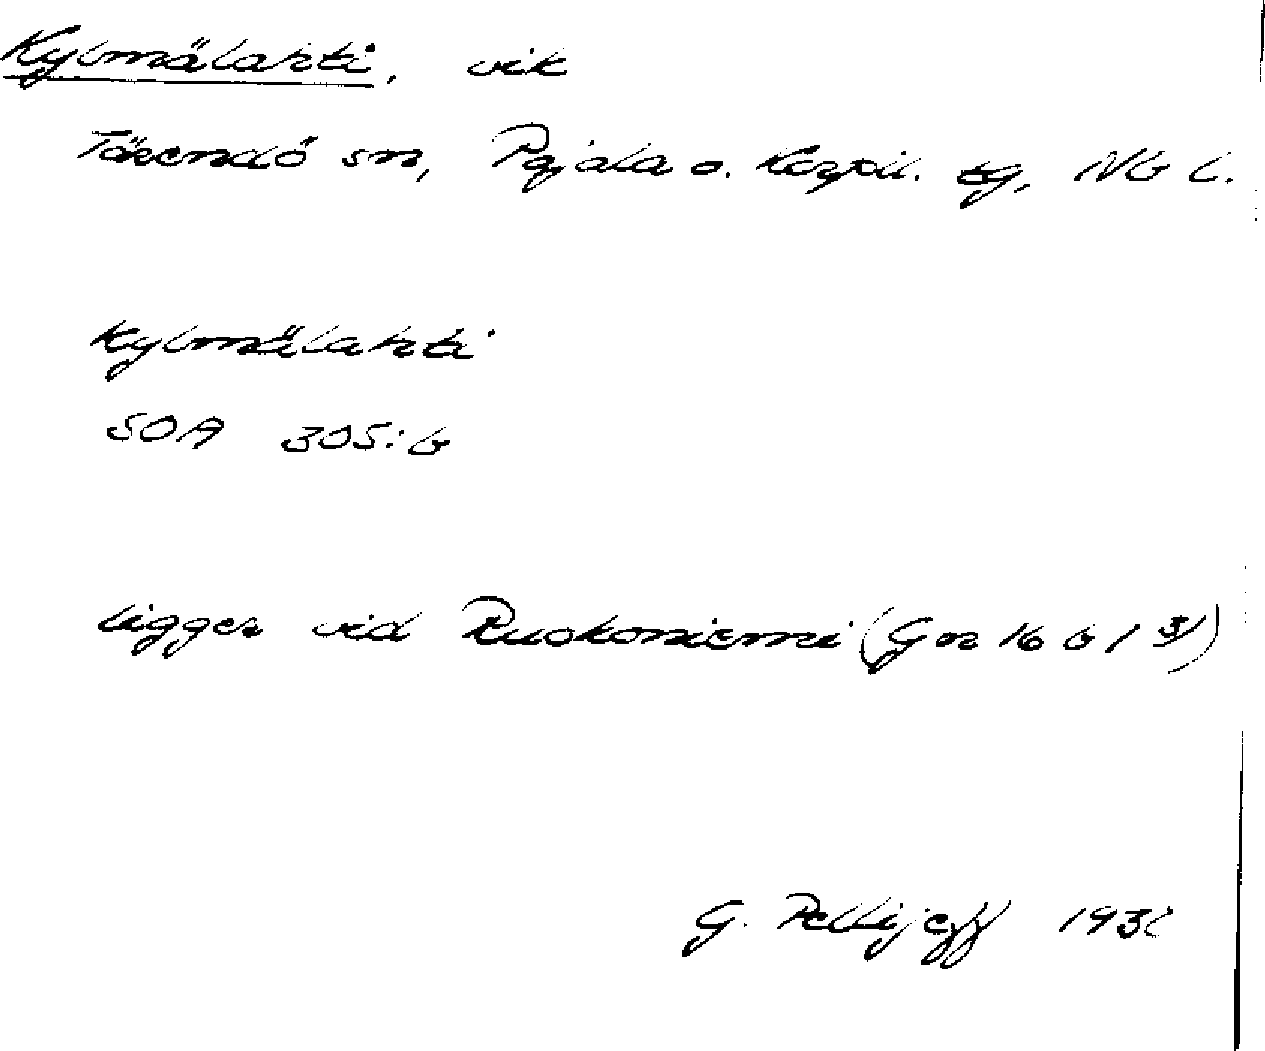 Kylmälahti, vik
Tärendö sn, Pajala o. Korpil. tg, Nb l.
Kylmälahti
SOA 305:6
ligger vid Ruokoniemi (Gn 16 b 1
G. Pellijeff